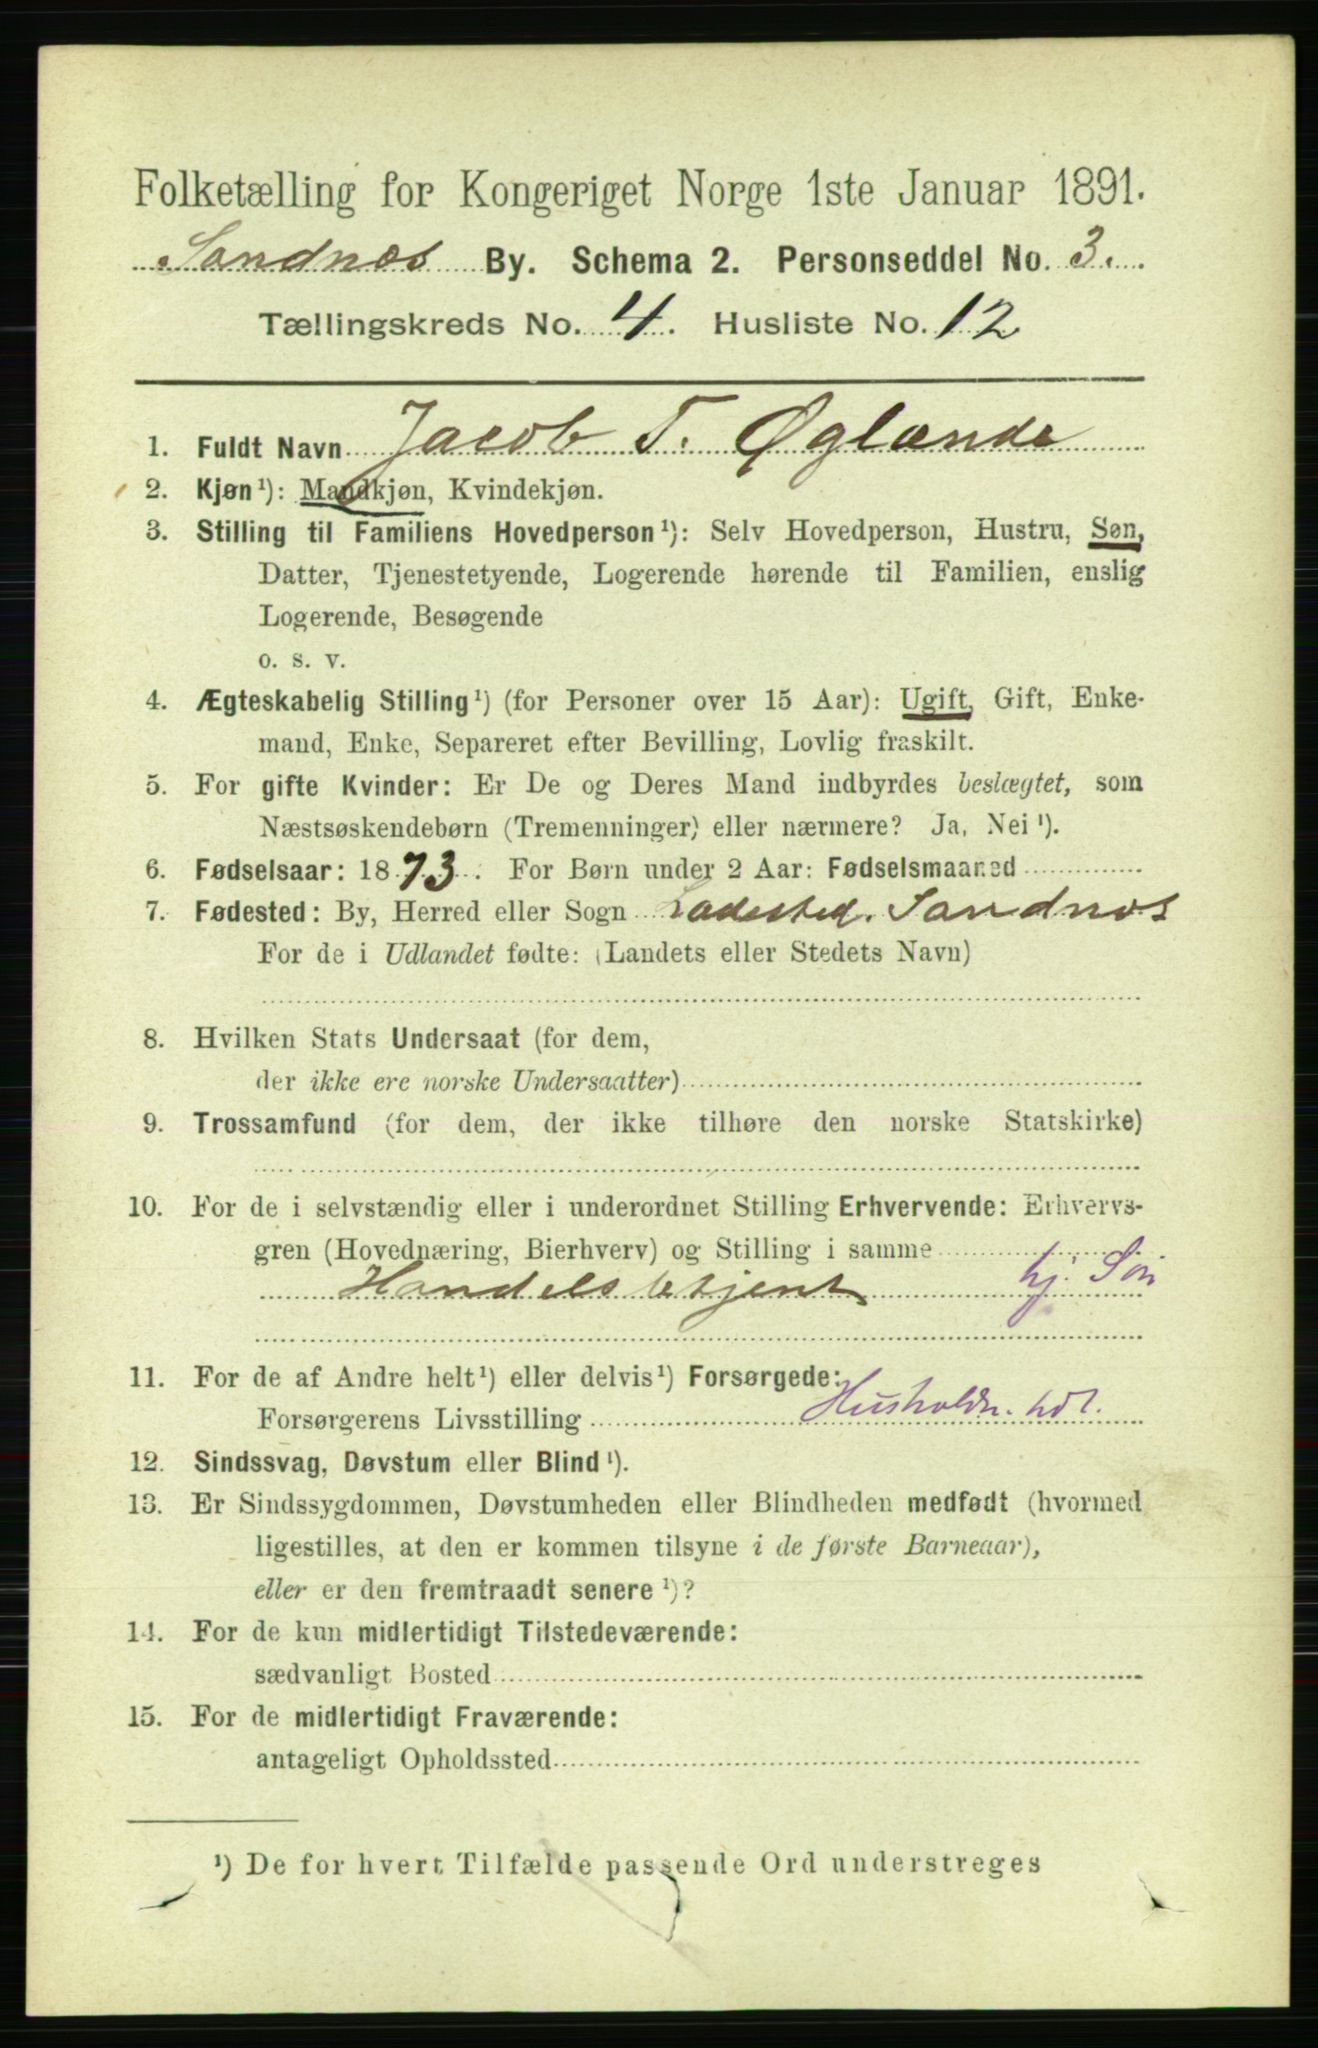 Folketælling for Kongeriget Norge 1ste Januar 1891.
Sandnæs By. Schema 2. Personseddel No. 3.
Tællingskreds No. 4. Husliste No. 12
1. Fuldt Navn Jacob T. Øglænde
2. Kjøn¹): Mandkjøn, Kvindekjøn.
3. Stilling til Familiens Hovedperson¹): Selv Hovedperson, Hustru, Søn,
Datter, Tjenestetyende, Logerende hørende til Familien, enslig
Logerende, Besøgende
o. s. v.
4. Ægteskabelig Stilling¹) (for Personer over 15 Aar): Ugift, Gift, Enke-
mand, Enke, Separeret efter Bevilling, Lovlig fraskilt.
5. For gifte Kvinder: Er De og Deres Mand indbyrdes beslægtet, som
Næstsøskendebørn (Tremenninger) eller nærmere? Ja, Nei¹).
6. Fødselsaar: 1873. For Børn under 2 Aar: Fødselsmaaned
7. Fødested: By, Herred eller Sogn Ladested. Sandnæs
For de i Udlandet fødte: (Landets eller Stedets Navn)
8. Hvilken Stats Undersaat (for dem,
der ikke ere norske Undersaatter)
9. Trossamfund (for dem, der ikke tilhøre den norske Statskirke)
10. For de i selvstændig eller i underordnet Stilling Erhvervende: Erhvervs-
gren (Hovednæring, Bierhverv) og Stilling i samme
Handelsbetjent hj. Søn
11. For de af Andre helt¹) eller delvis¹) Forsørgede:
Forsørgerens Livsstilling Husholdn. hdl.
12. Sindssvag, Døvstum eller Blind¹).
13. Er Sindssygdommen, Døvstumheden eller Blindheden medfødt (hvormed
ligestilles, at den er kommen tilsyne i de første Barneaar),
eller er den fremtraadt senere¹)?
14. For de kun midlertidigt Tilstedeværende:
sædvanligt Bosted
15. For de midlertidigt Fraværende:
antageligt Opholdssted
¹) De for hvert Tilfælde passende Ord understreges